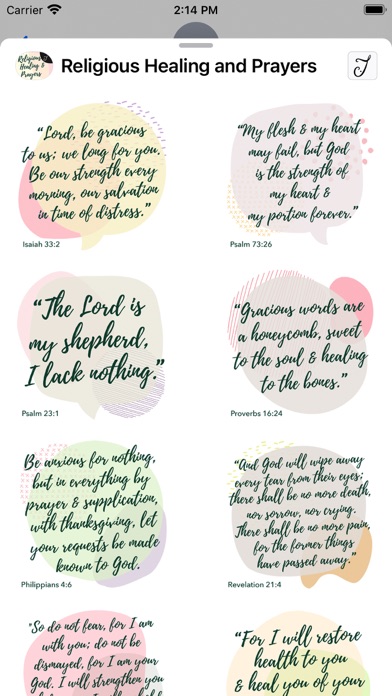 Carrier 2:14 PM
Religious Healing & Prayers
Religious Healing and Prayers
“Lord, be gracious
to us; we long for you.
Be our strength every
morning, our salvation
in time of distress.”
Isaiah 33:2
“My flesh & my heart
may fail, but God
is the strength of
my heart &
my portion forever.”
Psalm 73:26
“The Lord is
my shepherd,
I lack nothing.”
Psalm 23:1
“Gracious words are
a honeycomb, sweet
to the soul & healing
to the bones.”
Proverbs 16:24
Be anxious for nothing,
but in everything by
prayer & supplication,
with thanksgiving, let
your requests be made
known to God.
Philippians 4:6
“And God will wipe away
every tear from their eyes;
there shall be no more death,
nor sorrow, nor crying.
There shall be no more pain,
for the former things
have passed away.”
Revelation 21:4
"So do not fear, for I am
with you; do not be
dismayed, for I am your
God. I will strengthen you
“For I will restore
health to you
& heal you of your